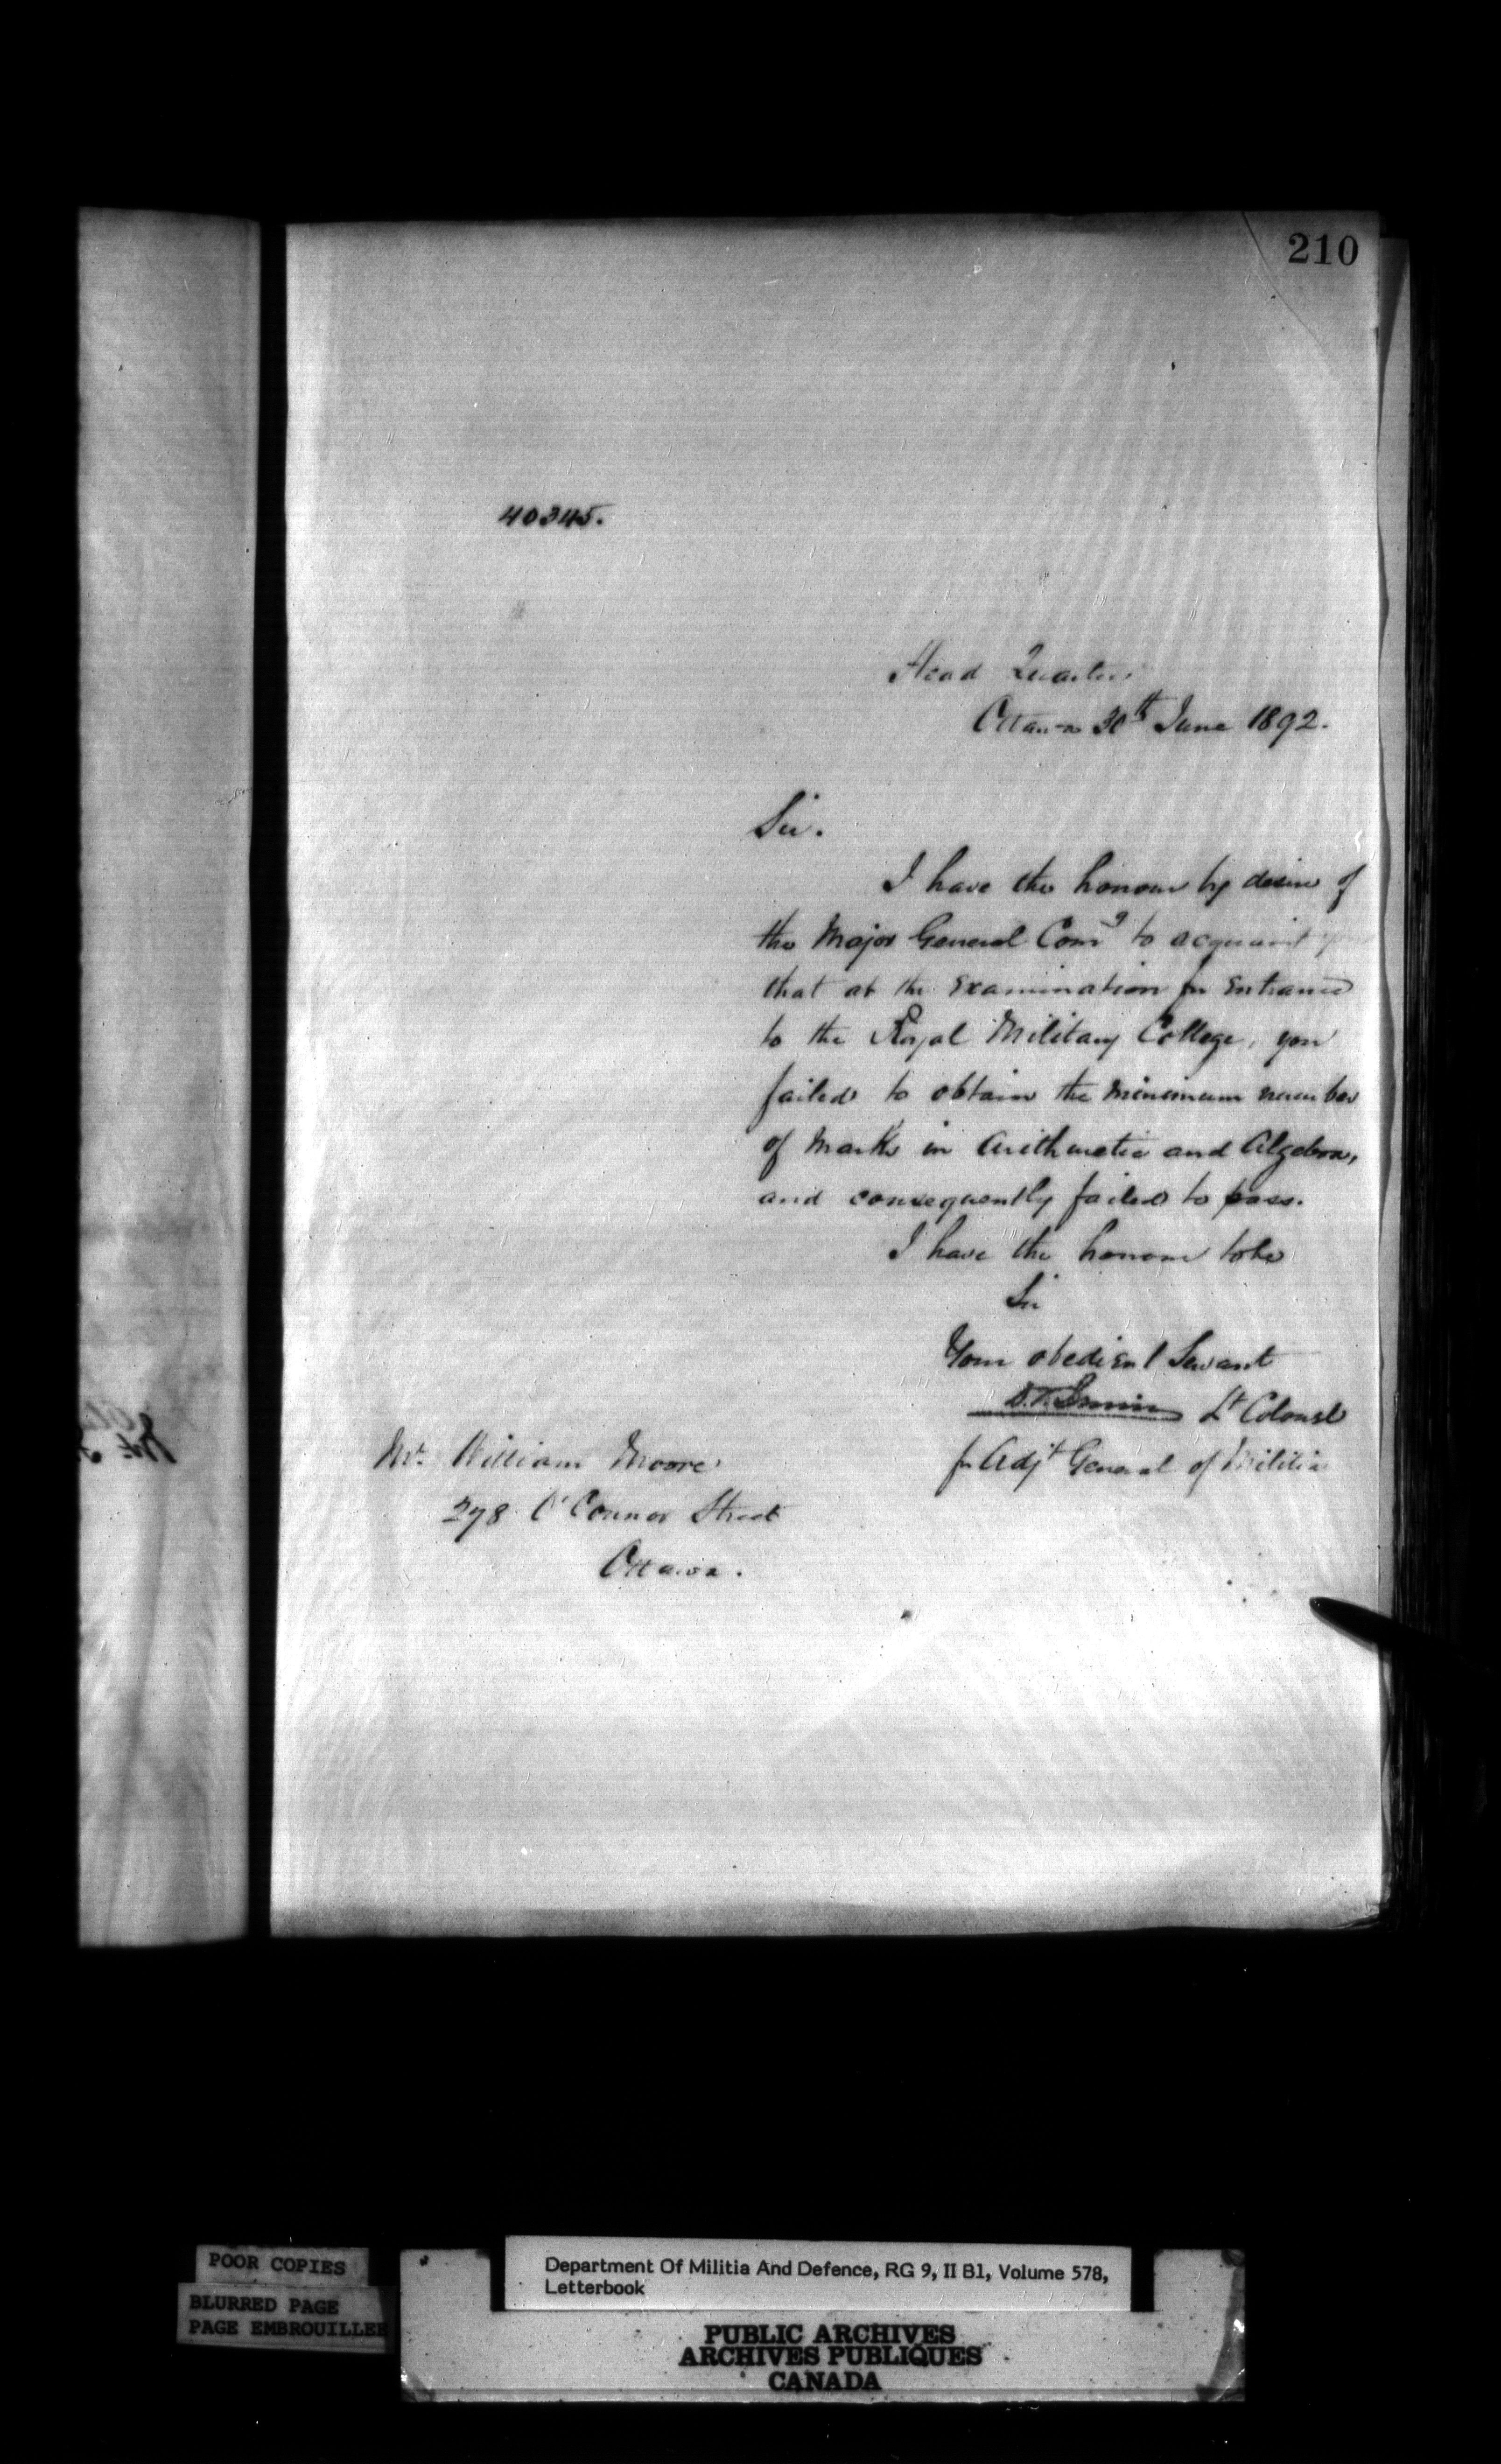 210
40345.
Head Quarters
Ottawa 30th June 1892.
Sir.
I have the honour by desire of
the Major General Comg to acquaint you
that at the Examination for Entrance
to the Royal Military College, you
failed to obtain the minimum number
of Marks in Arithmetic and Algebra,
and consequently failed to pass.
I have the honour to be
Sir
Your obedient Servant
D.T. Irwin Lt Colonel
for Adjt General of Militia
Mr. William Moore
278 O'Connor Street
Ottawa.
POOR COPIES
BLURRED PAGE
PAGE EMBROUILLEE
Department Of Militia And Defence, RG 9, II B1, Volume 578,
Letterbook
PUBLIC ARCHIVES
ARCHIVES PUBLIQUES
CANADA